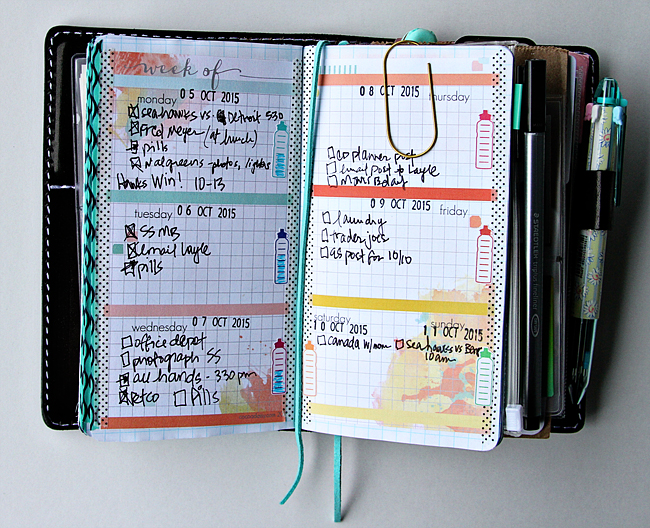 week of
monday 05 OCT 2015
seahawks vs. Detroit 530
Fred Meyer (at lunch)
pills
Walgreens - photos,
Hawks Win! 10-13
tuesday 06 OCT 2015
SS MB
email Layle
pills
wednesday 07 OCT 2015
office depot
photograph SS
all hands - 330pm
petco pills
08 OCT 2015 thursday
cd planner post
email post to Layle
Mom's Bday
09 OCT 2015 friday
laundry
trader joes
as post for 10/10
saturday
10 OCT 2015
canada w/mom
sunday
11 OCT 2015
seahawks vs
10am
STAEDTLER